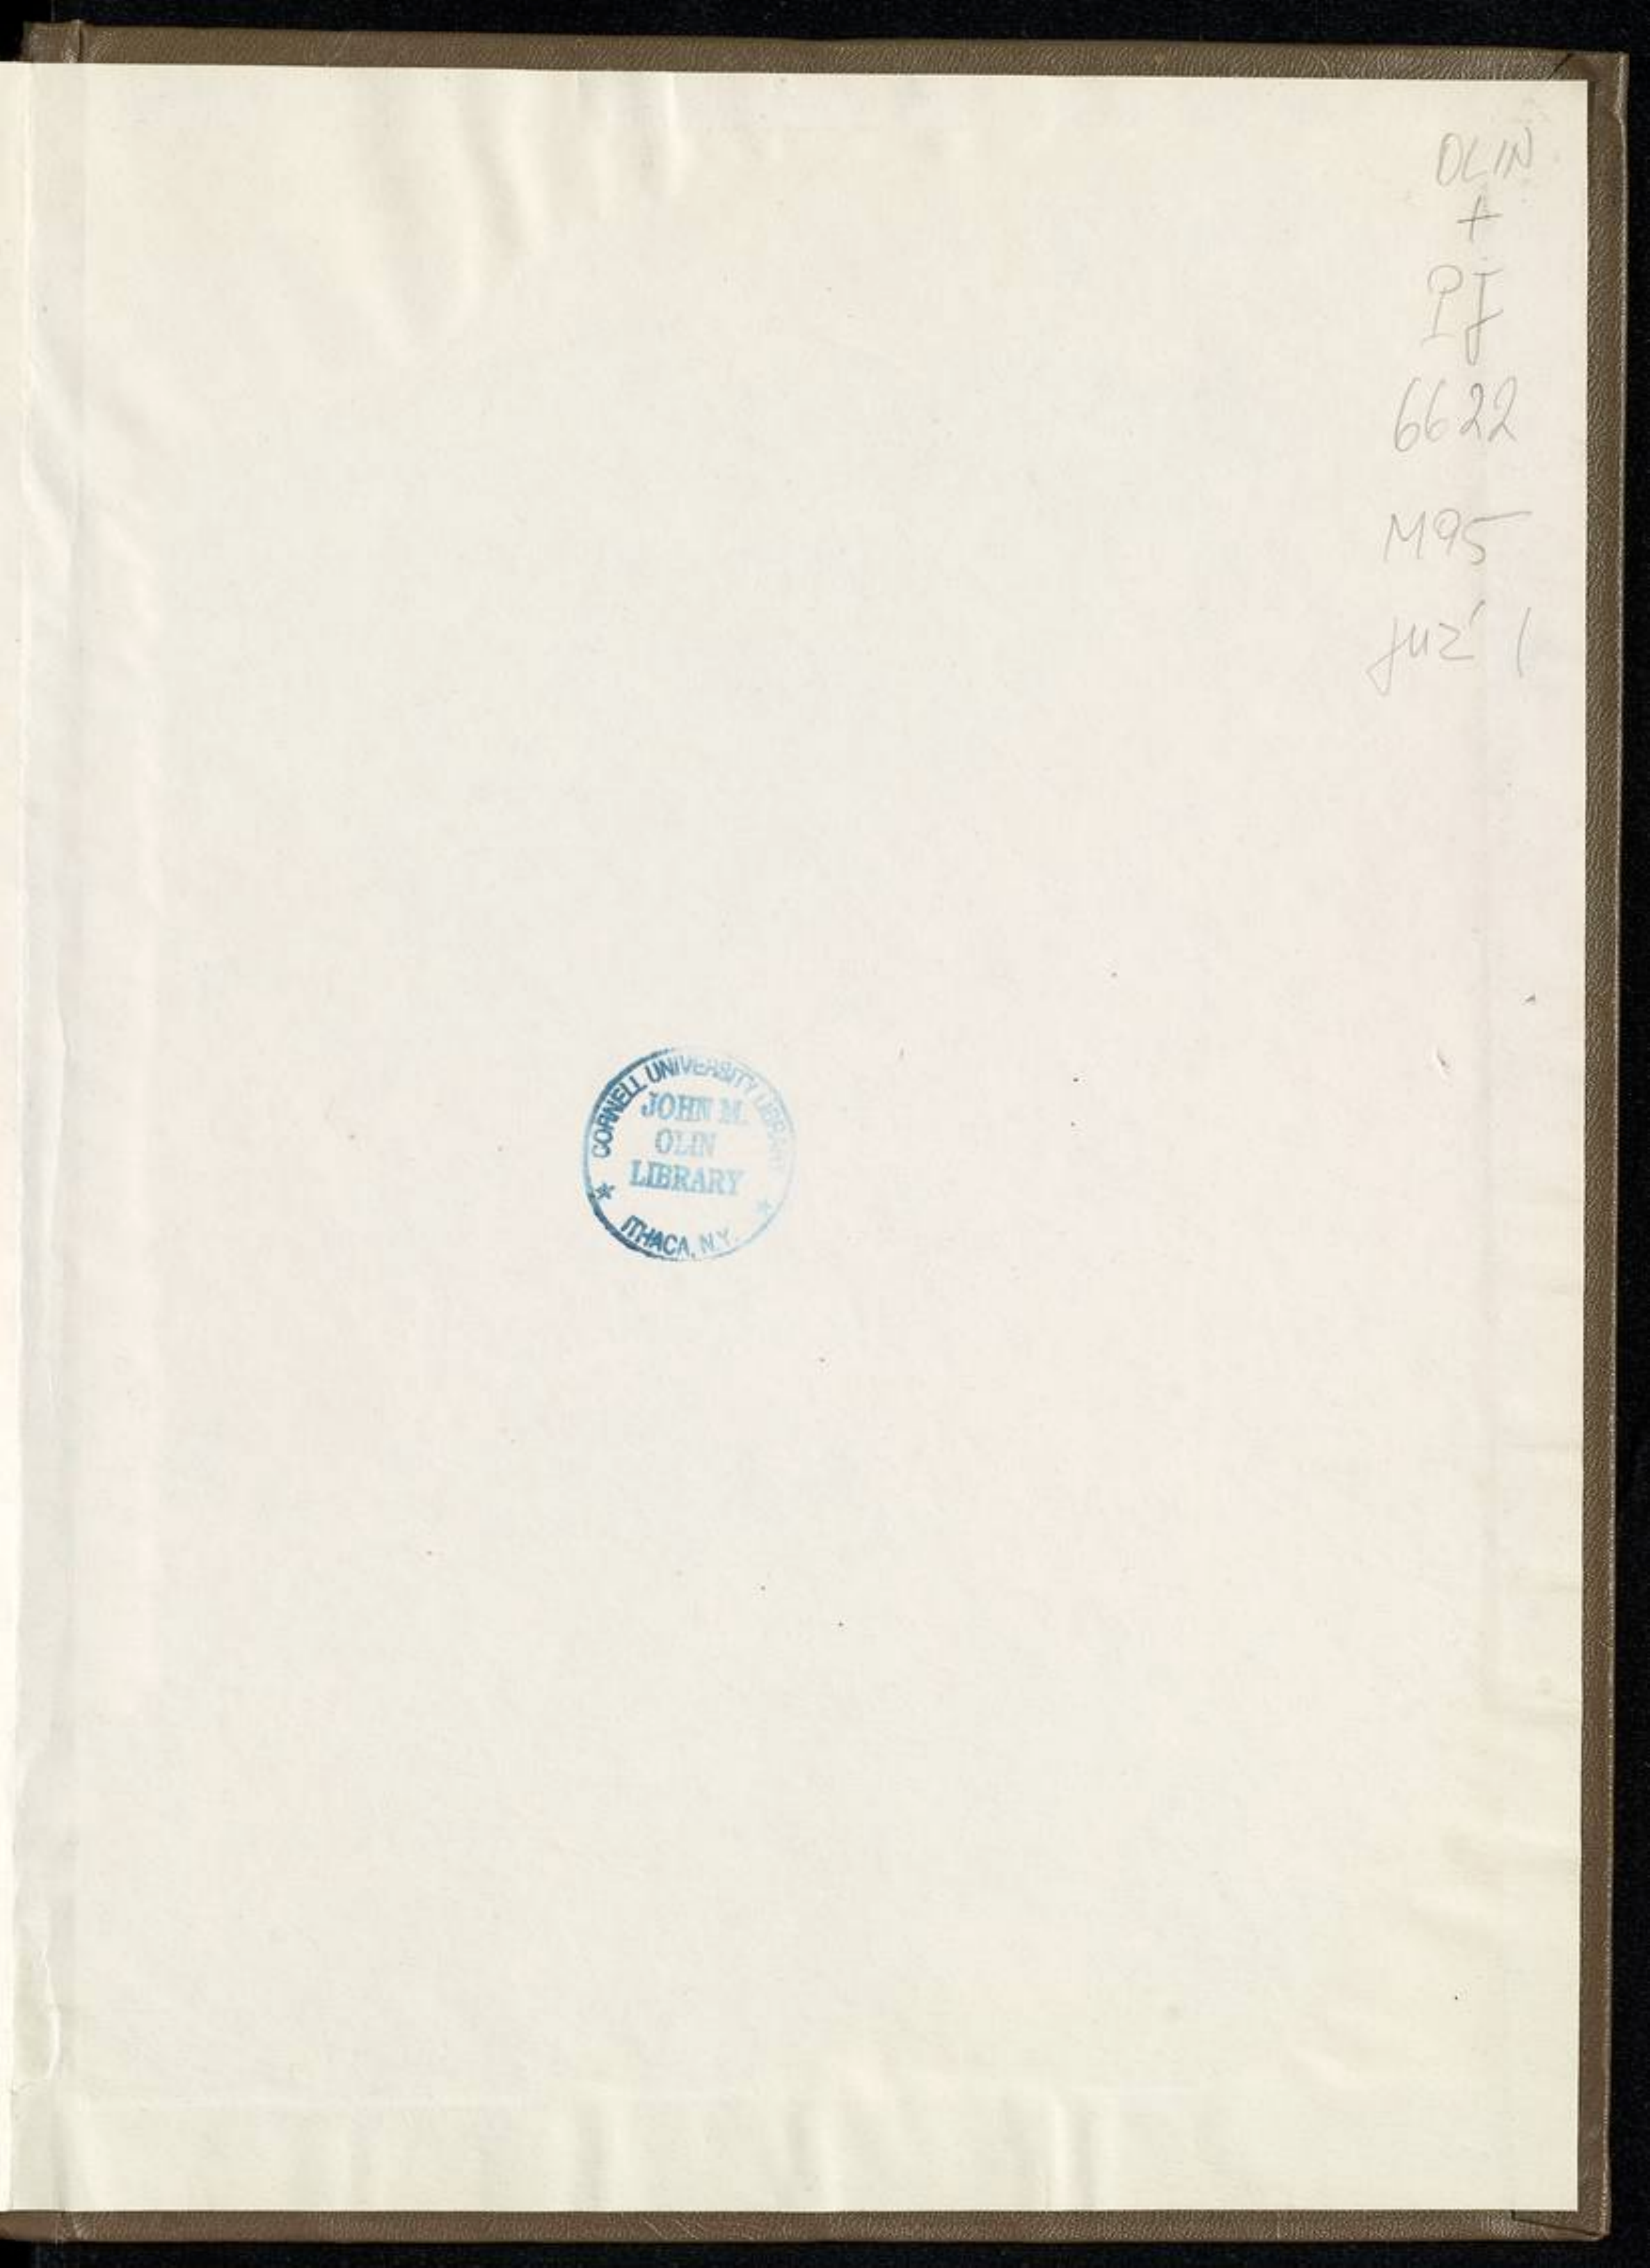 OLIN
+
PJ
6622
M95
juz' 1
CORNELL UNIVERSITY LIBRARY
JOHN M.
OLIN
LIBRARY
★ ★
ITHACA, N.Y.